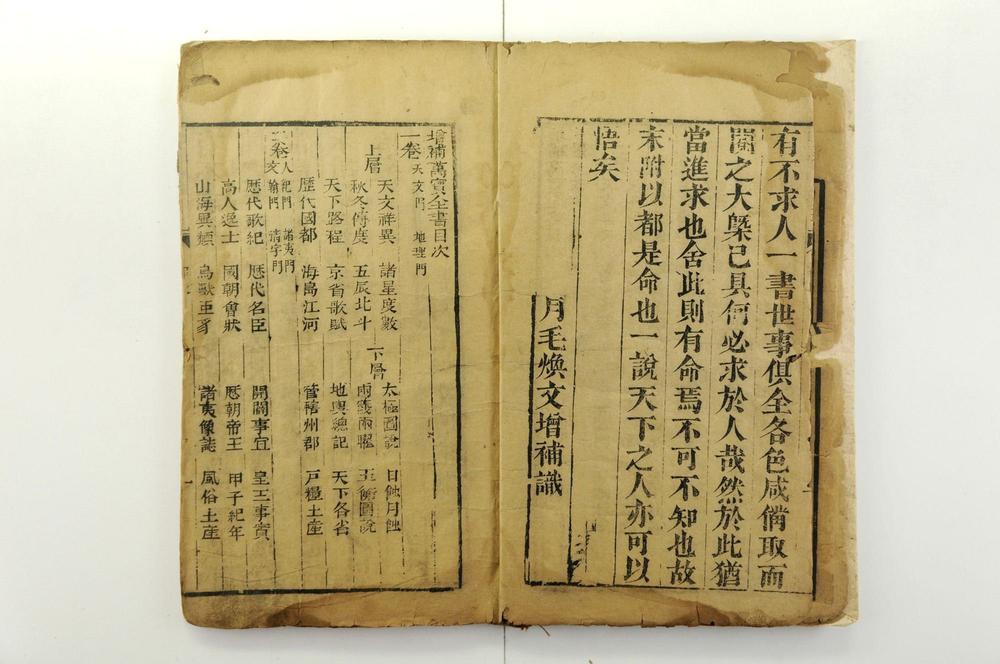 有不求人一書世事俱全各色咸備取而
閱之大槩已具何必求於人哉然於此猶
當進求也舍此則有命焉不可不知也故
末附以都是命也一說天下之人亦可以
悟矣
月毛煥文增補識
增補萬寶全書目次
一卷 天文門 地理門
上層 天文祥異 諸星度數 下層 太極圖說 日蝕月蝕
秋冬傳度 五辰北斗 兩儀兩曜 圖說
天下路程 京省歌賦 地輿總記 天下各省
歷代國都 海島江河 管轄州郡 戶糧土產
卷 人紀門 諸夷門 文翰門 清字門
歷代歌紀 歷代名臣 開闢事宜 皇王事實
高人逸士 國朝會狀 歷朝帝王 甲子紀年
山海異類 鳥獸 諸夷像誌 風俗土產